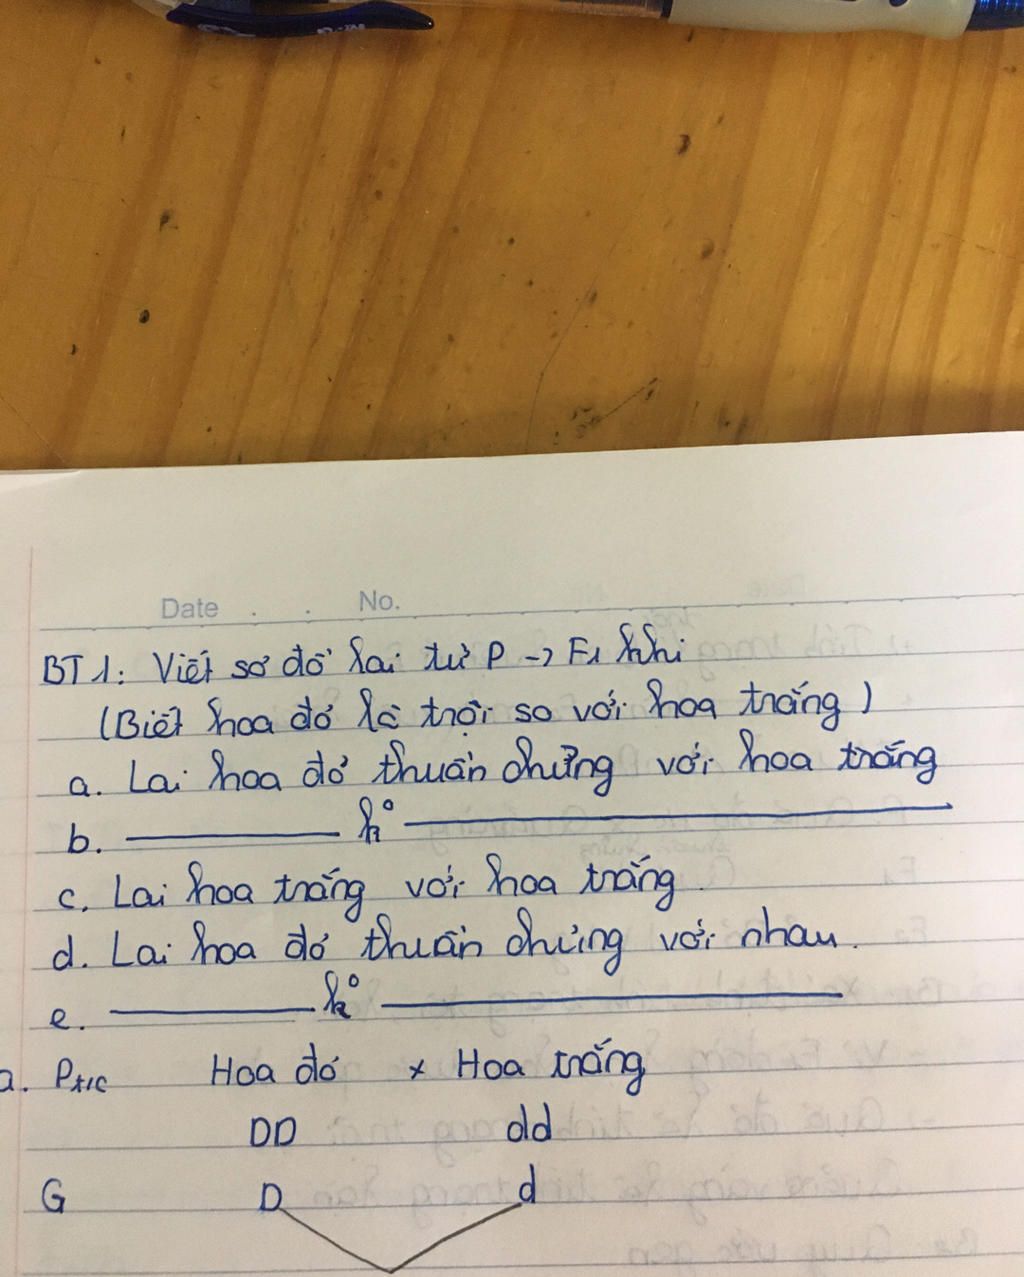 Date . . No.
BT1: Viết sơ đồ lai từ P -> F1 khi
(Biết hoa đỏ là trội so với hoa trắng)
a. Lai hoa đỏ thuần chủng với hoa trắng
b. ——— ko ———
c. Lai hoa trắng với hoa trắng.
d. Lai hoa đỏ thuần chủng với nhau.
e. ——— ko ———
a. Pt/c Hoa đỏ x Hoa trắng
DD dd
G D d